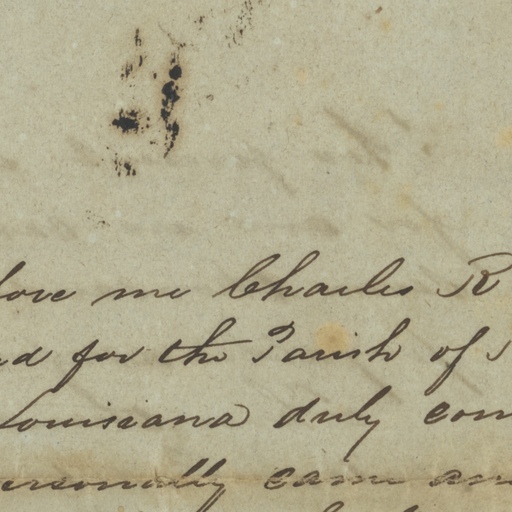 fore me Charles R
nd for the Parish of
Louisiana duly com
ersonally came and